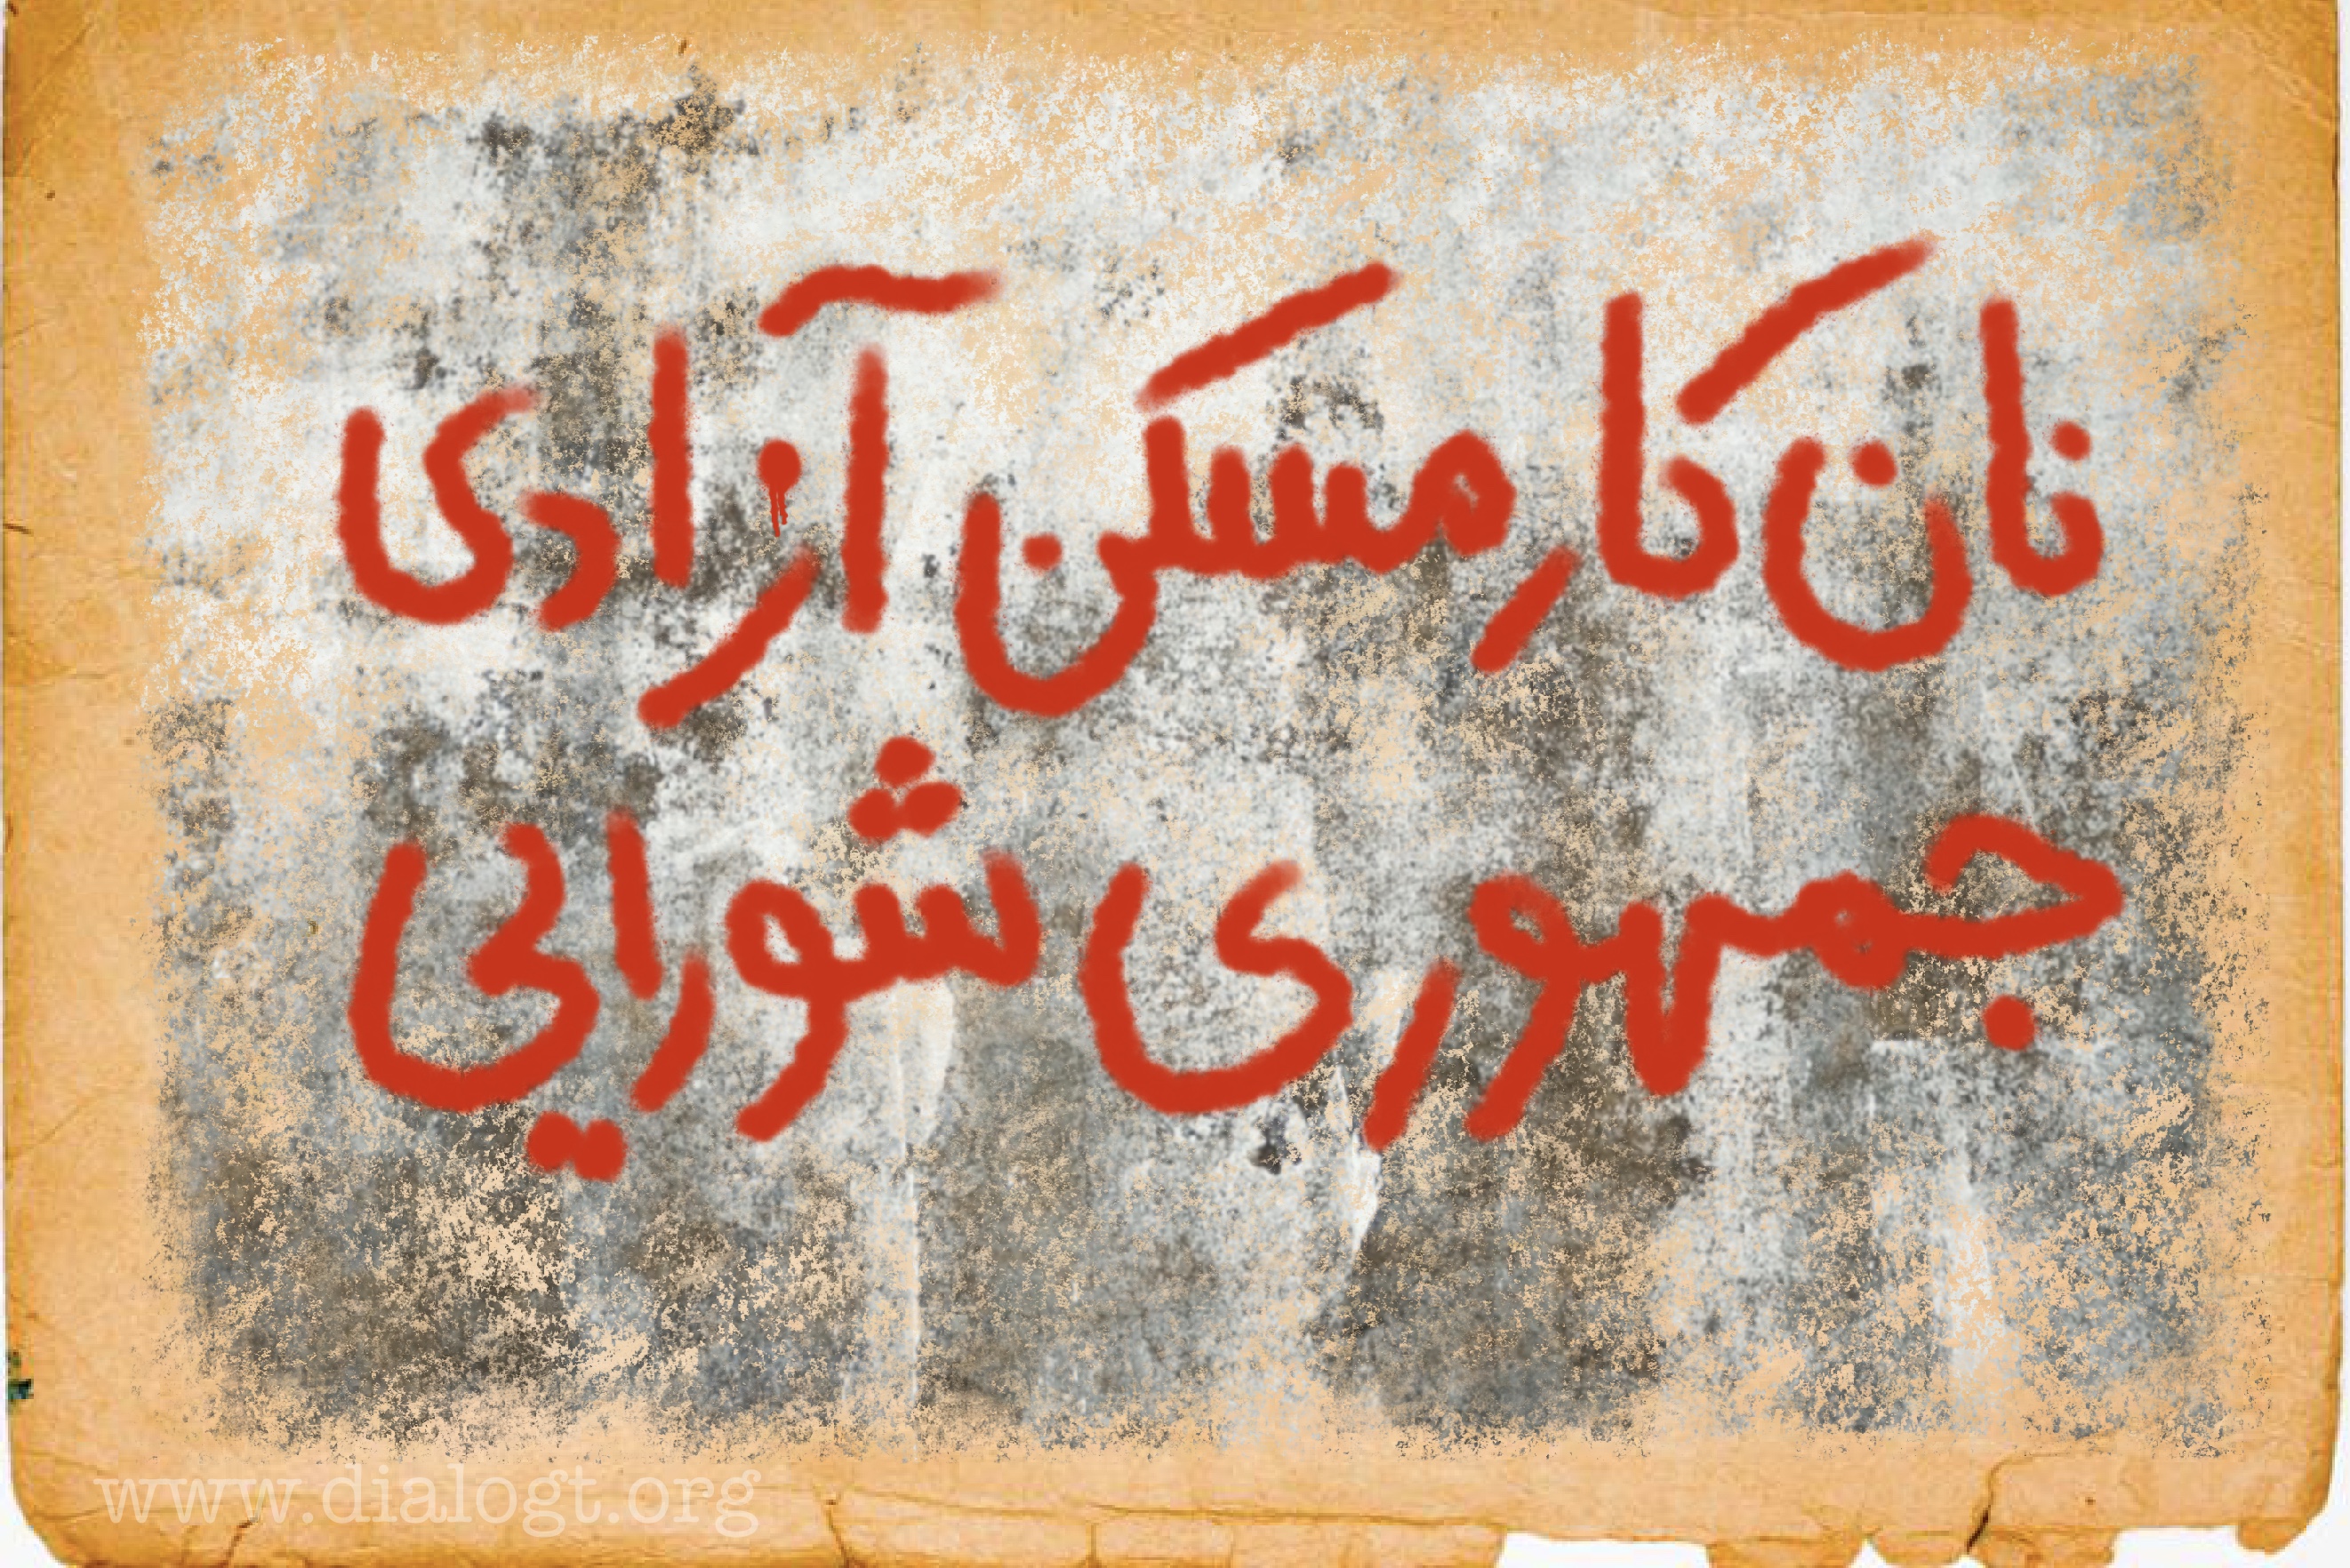 نان کار مسکن آزادی
جمهوری شورایی
www.dialogt.org